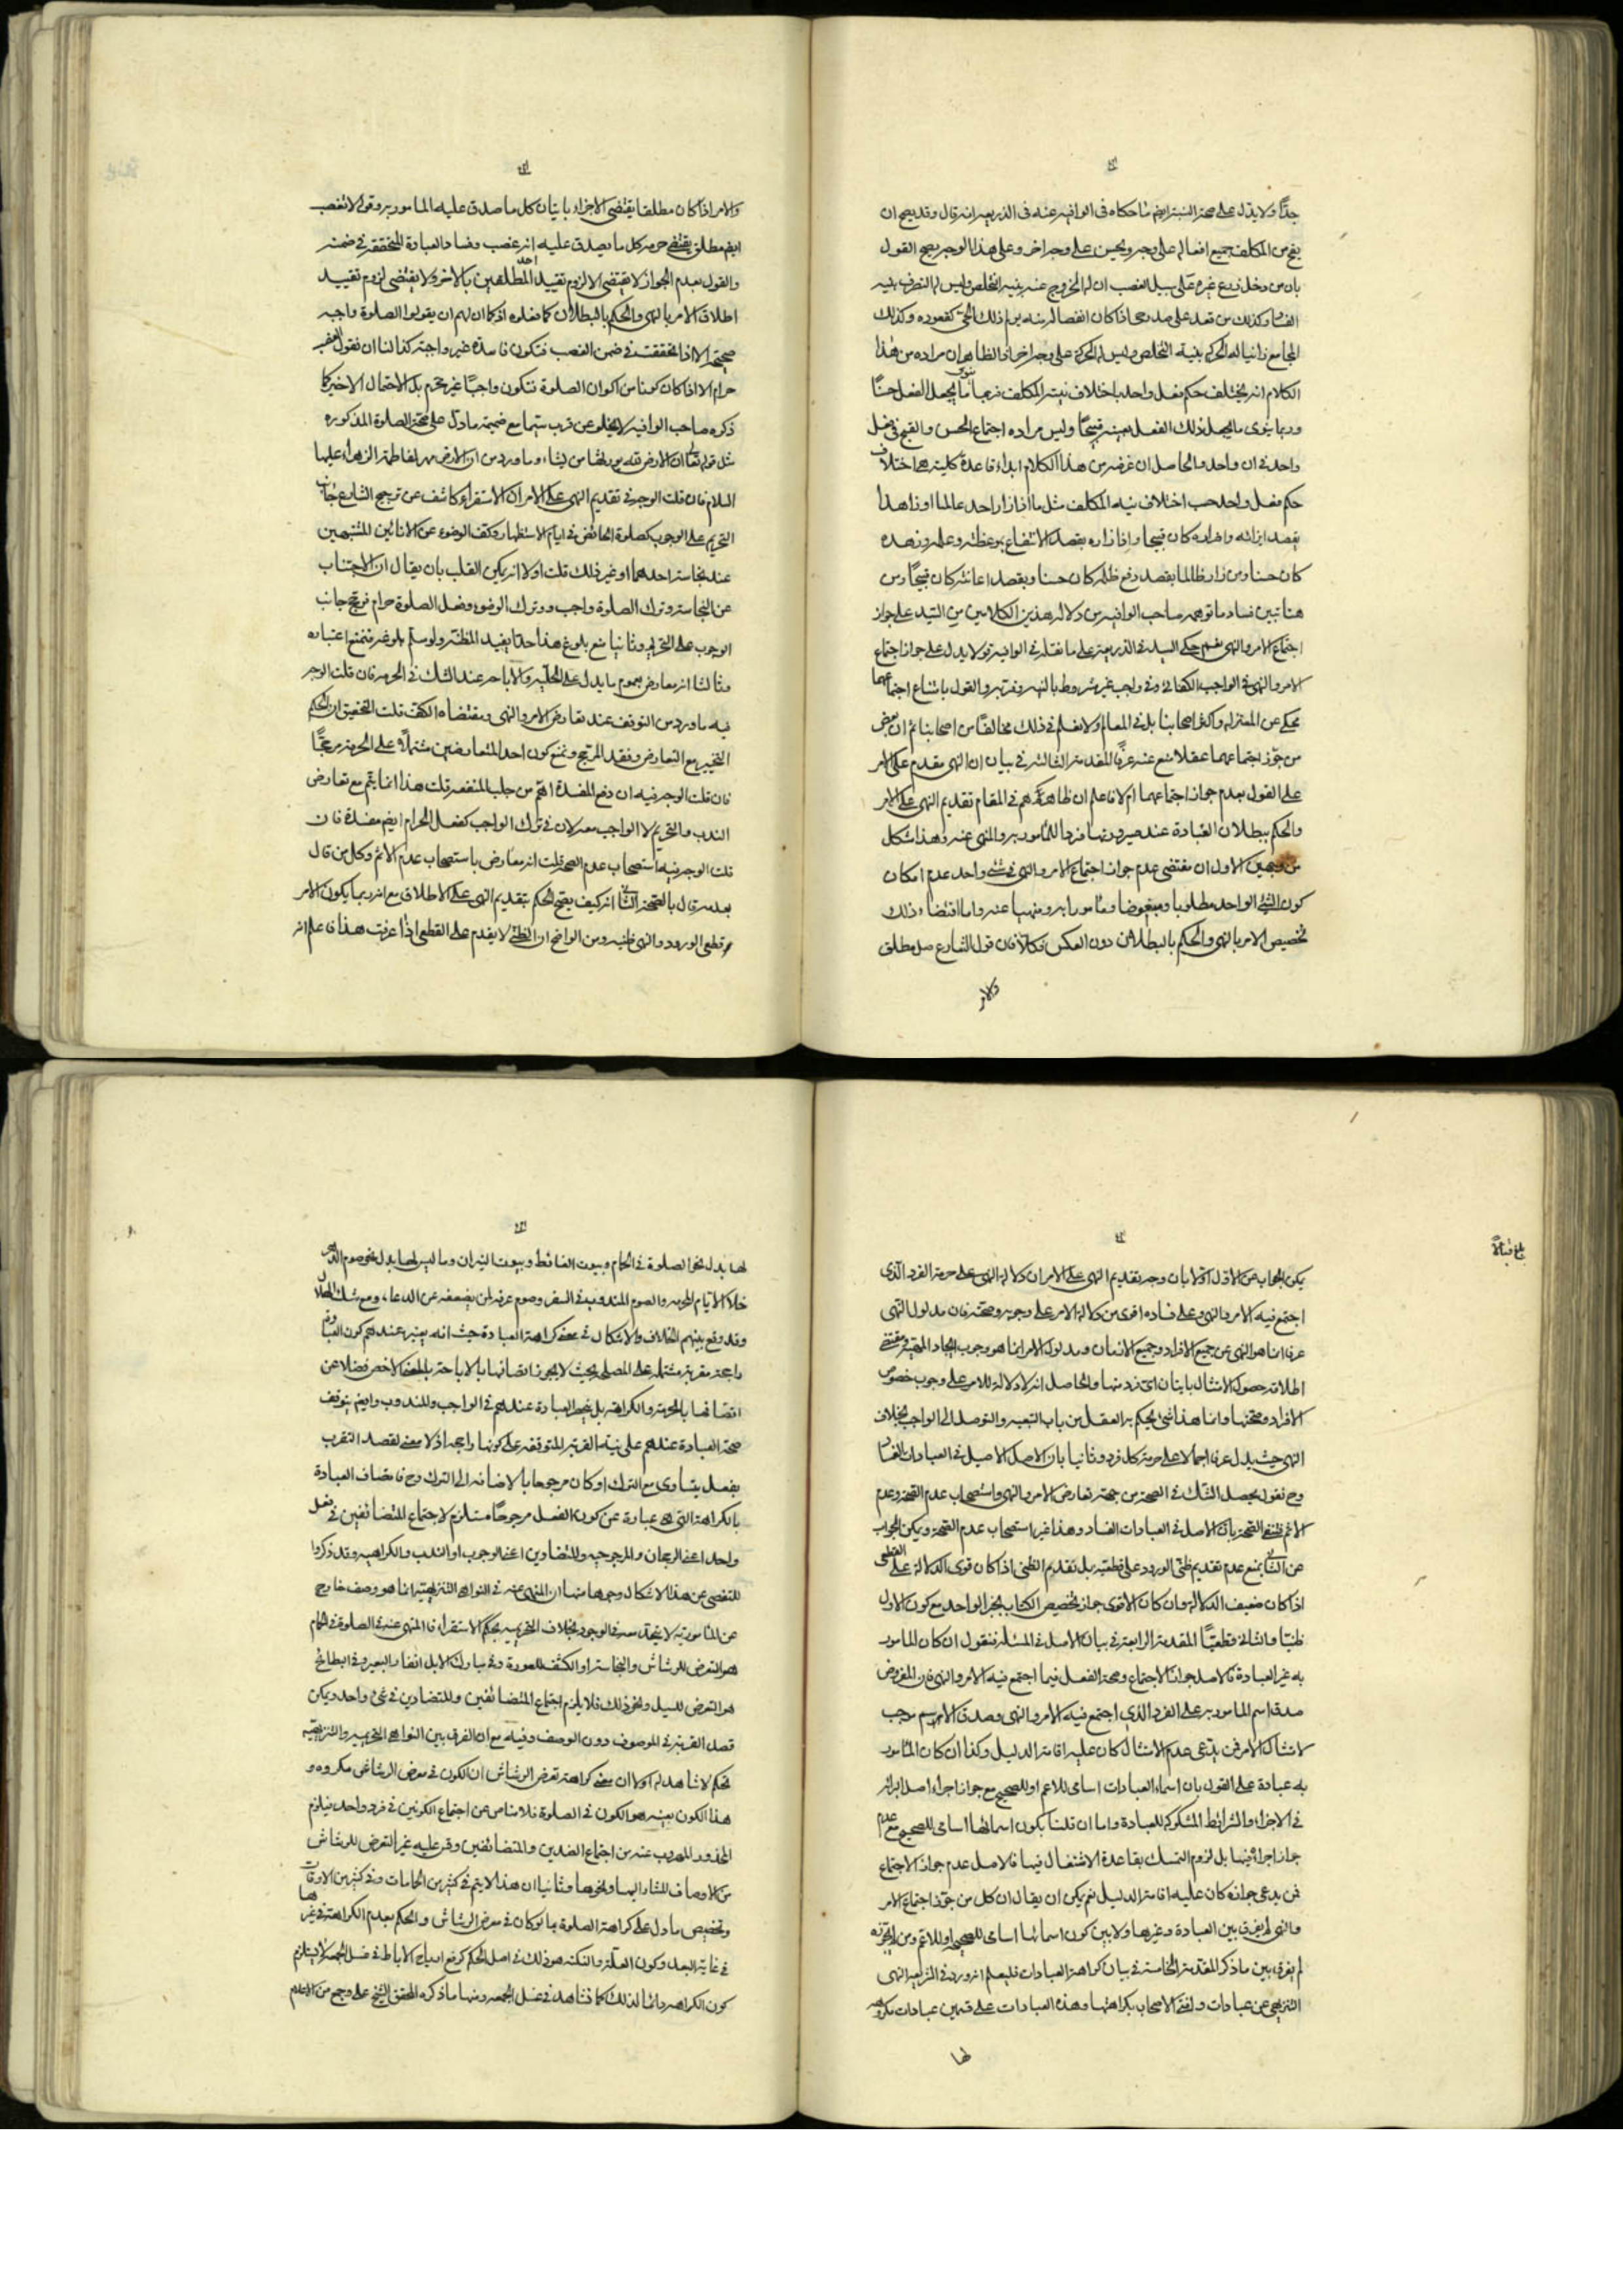 جدّا ولا يدلّ على صحة النسبة ايضا ما حكاه فى الوافيه عنه فى الذريعه انه قال وقد يصح ان
يقع من المكلف جميع افعاله على وجه ويحسن على وجه اخر وعلى هذا الوجه يصح القول
بان من دخل زرع غيره على سبيل الغصب ان له الخروج عنه بنيه التخلص وليس له التصرف بنيه
الفساد وكذلك من قعد على صدر حى اذا كان انفصاله منه يولم ذلك الحى كقعوده وكذلك
المجامع زانيا له الحركه بنية التخلص وليس له الحركة على وجه اخر اذ الظاهر ان مراده من هذا
الكلام انه يختلف حكم فعل واحد باختلاف نية المكلف فربما ينوى ما يجعل الفعل حسنًا
وربما ينوى ما يجعل ذلك الفعل بعينه قبيحًا وليس مراده اجتماع الحسن والقبح فى فعل
واحد فى ان واحد والحاصل ان غرضه من هذا الكلام ابداء قاعدة كلية هى اختلاف
حكم فعل واحد حسب اختلاف نيه المكلف مثل ما اذا زار احد عالما او زاهدا
بقصد ايذائه واضراره كان قبيحا واذا زاره بقصد الانتفاع بوعظه وعلمه وزهده
كان حسنا ومن زار ظالما بقصد دفع ظلمه كان حسنا وبقصد اعانته كان قبيحًا ومن
هنا تبين فساد ما توهمه صاحب الوافيه من دلاله هذين الكلامين من السيد على جواز
اجتماع الامر والنهى نعم حكى السيد فى الذريعة على ما نقله فى الوافية قولا يدل على جواز اجتماع
الامر والنهى فى الواجب الكفائى وفى واجب غير مشروط بالنيه وقربة والقول بامتناع اجتماعهما
محكى عن المعتزله واكثر اصحابنا بل فى المعالم ولا نعلم فى ذلك مخالفًا من اصحابنا ثم ان بعض
من جوّز اجتماعهما عقلا منع عنه عرفًا المقدمة الثالثة فى بيان ان النهى مقدم على الامر
على القول بعدم جواز اجتماعهما ام لا فاعلم ان ظاهرهم فى المقام تقديم النهى على الامر
والحكم ببطلان العبادة عند صيرورتها فردا للمأمور به والمنهى عنه وهذا مشكل
من وجهين الاول ان مقتضى عدم جواز اجتماع الامر والنهى فى شئ واحد عدم امكان
كون الشئ الواحد مطلوبا ومبغوضا ومأمورا به ومنهيا عنه واما اقتضاء ذلك
تخصيص الامر بالنهى والحكم بالبطلان دون العكس فكلا فان قول الشارع صل مطلق
والامر
والامر اذا كان مطلقا يقتضى الاجزاء باتيان كل ما صدق عليه المامور به وقوله لا تغصب
ايضا مطلق يقتضى حرمة كل ما يصدق عليه انه غصب وفساد العبادة المتحققة فى ضمنه
والقول بعدم الجواز لا يقتضى الا لزوم تقييد احد المطلقين بالاخر ولا يقتضى لزوم تقييد
اطلاق الامر بالنهى والحكم بالبطلان كما فعلوه اذ كما ان لهم ان يقولوا الصلوة واجبه
صحيحة الا اذا تحققت فى ضمن الغصب فتكون فاسدة غير واجبة كذا لنا ان نقول الغصب
حرام الا اذا كان كونا من اكوان الصلوة فتكون واجبًا غير محرّم بل الاحتمال الاخير كما
ذكره صاحب الوافيه لا يخلو عن قرب سيما مع ضميمة ما دلّ على صحة الصلوة المذكوره
مثل قوله تعالى ان الارض لله يورثها من يشاء وما ورد من ان الارض مهر لفاطمة الزهراء عليها
السلام فان قلت الوجه فى تقديم النهى على الامر ان الاستقراء كاشف عن ترجيح الشارع جانب
التحريم على الوجوب كصلوة الحائض فى ايام الاستظهار وكف الوضوء عن الانائين المشتبهين
عند نجاسة احدهما او غير ذلك قلت اولا انه يمكن القلب بان يقال ان الاجتناب
عن النجاسة وترك الصلوة واجب وترك الوضوء وفعل الصلوة حرام فرجّح جانب
الوجوب على التحريم وثانيا نمنع بلوغ هذا حدّا يفيد المظنة ولو سلّم بلوغه فنمنع اعتباره
وثالثا انه معارض بعموم ما يدل على الحلّيه والاباحه عند الشك فى الحرمه فان قلت الوجه
فيه ما ورد من التوقف عند تعارض الامر والنهى ومقتضاه الكفّ قلت التحقيق ان الحكم
التخيير مع التعارض وفقد المرجّح ونمنع كون احد المتعارضين مشتملًا على الحرمة مرجّحًا
فان قلت الوجه فيه ان دفع المفسدة اهمّ من جلب المنفعه قلت هذا انما يتمّ مع تعارض
الندب والتحريم لا الواجب معه لان فى ترك الواجب كفعل الحرام ايضا مفسدة فان
قلت الوجه فيه استصحاب عدم الصحه قلت انه معارض باستصحاب عدم الاثم وكل من قال
بعدمه قال بالصحة الثانى انه كيف يصح الحكم بتقديم النهى على الاطلاق مع انه ربما يكون الامر
قطعى الورود والنهى ظنيه ومن الواضح ان الظنى لا يقدم على القطعى اذا عرفت هذا فاعلم انه
بلغ قبالاً
يمكن الجواب عن الاول اوّلا بان وجه تقديم النهى على الامر ان دلاله النهى على حرمة الفرد الّذى
اجتمع فيه الامر والنهى وعلى فساده اقوى من دلالة الامر على وجوبه وصحته فان مدلول النهى
عرفا انما هو النهى عن جميع الافراد وجميع الازمان ومدلول الامر انما هو وجوب ايجاد المهية ومقتضى
اطلاقه حصول الامتثال باتيان اىّ فرد منها والحاصل انه لا دلالة للامر على وجوب خصوص
الافراد وصحتها وانما هذا شئ يحكم به العقل من باب التبعيه والتوصل الى الواجب بخلاف
النهى حيث يدل عرفا اجمالا على حرمة كل فرد وثانيا بان الاصل الاصيل فى العبادات الفساد
وح نقول يحصل الشك فى الصحة من جهة تعارض الامر والنهى واستصحاب عدم الصحة وعدم
الاثم فننفى الصحة بان الاصل فى العبادات الفساد وهذا غير استصحاب عدم الصحة ويمكن الجواب
عن الثانى بمنع عدم تقديم ظنّى الورود على قطعيّه بل نقدم الظنى اذا كان قوى الدلالة على القطعى
اذا كان ضعيف الدلالة وان كان الاقوى جواز تخصيص الكتاب بخبر الواحد مع كون الاول
ظنيّا والثانى قطعيّا المقدمة الرابعة فى بيان الاصل فى المسئله فنقول ان كان المامور
به غير العبادة فالاصل جواز الاجتماع وصحة الفعل فيما اجتمع فيه الامر والنهى فان المفروض
صدق اسم المامور به على الفرد الذى اجتمع فيه الامر والنهى وصدق الاسم موجب
لامتثال الامر فمن يدّعى عدم الامتثال كان عليه اقامة الدليل وكذا ان كان المأمور
به عبادة على القول بان اسماء العبادات اسامى للاعم او للصحيح مع جواز اجراء اصل البرائه
فى الاجزاء والشرائط المشكوكه للعبادة واما ان قلنا بكون اسمائها اسامى للصحيح مع عدم
جواز اجرائه فيها بل لزوم التمسك بقاعدة الاشتغال فيها فالاصل عدم جواز الاجتماع
فمن يدعى جوازه كان عليه اقامة الدليل نعم يمكن ان يقال ان كل من جوّز اجتماع الامر
والنهى لم يفرق بين العبادة وغيرها ولا بين كون اسمائها اسامى للصحيحه او للاعّم ومن لم يجوّزه
لم يفرق بين ما ذكر المقدمة الخامسة فى بيان كراهة العبادات فليعلم انه ورد فى الشريعه النهى
التنزيهى عن عبادات وافتى الاصحاب بكراهتها وهذه العبادات على قسمين عبادات مكروهه
لها
لها بدل نحو الصلوة فى الحمام وبيوت الغائط وبيوت النيران وما ليس لها بدل نحو صوم الدهر
خلا الايام المحرمه والصوم المندوب فى السفر وصوم عرفه لمن يضعفه عن الدعاء ومع شك الهلال
وقد وقع بينهم الخلاف والاشكال فى معنى كراهة العبادة حيث انه يعتبر عندهم كون العبادة
راجحة مقربة مشتملة على المصلحه بحيث لا يجوز اتصافها بالاباحة بالمعنى الاخص فضلا عن
اتصافها بالحرمة والكراهة بل ينحصر العبادة عندهم فى الواجب والمندوب وايضم يتوقف
صحة العبادة عندهم على نيّة القربة المتوقفه على كونها راجحه اذ لا معنى لقصد التقرب
بفعل يتساوى مع الترك او كان مرجوحا بالاضافه الى الترك وح فاتصاف العبادة
بالكراهة التى هى عبارة عن كون الفعل مرجوحًا مستلزم لاجتماع المتضائفين فى فعل
واحد اعنى الرجحان والمرجوحيه والمتضادين اعنى الوجوب او الندب والكراهيه وقد ذكروا
للتفصى عن هذا الاشكال وجوها منها ان المنهى عنه فى النواهى التنزيهيّه انما هو وصف خارج
عن المأمور به لا يتحد معه فى الوجود بخلاف التحريميه بحكم الاستقراء فالمنهى عنه فى الصلوة فى الحمام
هو التعرض للرشاش والنجاسة او الكشف للعورة وفى مبارك الابل انفار البعير وفى البطايح
هو التعرض للسيل ونحو ذلك فلا يلزم اجتماع المتضائفين والمتضادين فى شئ واحد ويمكن
قصد القربة فى الموصوف دون الوصف وفيه مع ان الفرق بين النواهى التحريميه والتنزيهيّه
تحكم لا شاهد له اولا ان معنى كراهة تعرض الرشاش ان الكون فى معرض الرشاش مكروه و
هذا الكون بعينه هو الكون فى الصلوة فلا مناص عن اجتماع الكونين فى فرد واحد فيلزم
المحذور المهروب عنه من اجتماع الضدين والمتضائفين وقس عليه غير التعرض للرشاش
من الاوصاف المشار اليها ونحوها وثانيا ان هذا لا يتم فى كثير من الحمامات وفى كثير من الاوقات
وتخصيص ما دل على كراهة الصلوة بما لو كان فى معرض الرشاش والحكم بعدم الكراهة فى غيرها
فى غاية البعد وكون العلّة والنكته هو ذلك فى اصل الحكم كرفع ارياح الاباط فى غسل الجمعه لا يستلزم
كون الكراهه دائما لذلك كما نشاهد فى غسل الجمعه ومنها ما ذكره المحقق الشيخ على وجمع من الاعلام